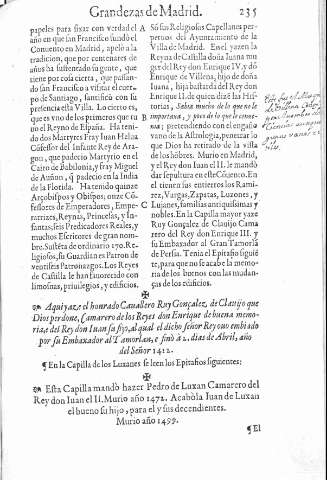 Grandezas de Madrid. 235
papeles para fixar con verdad el
año en que san Francisco fundò el
Conuento en Madrid, apelò a la
tradicion, que por centenares de
años ha sustentado su gente, que
tiene por cosa cierta, que passan-
do san Francisco a visitar el cuer-
po de Santiago, santificò con su
presencia esta Villa. Lo cierto es,
que es vno de los primeros que tu
uo el Reyno de España. Ha teni-
do dos Martyres Fray Iuan Halua
Cõfessor del Infante Rey de Ara-
gon, que padecio Martyrio en el
Cairo de Babilonia, y fray Miguel
de Auñon, q̃ padecio en la India
de la Florida. Ha tenido quinze
Arçobispos y Obispos; onze Cõ-
fessores de Emperadores, Empe-
ratrizes, Reynis, Princesas, y In-
fantas; seis Predicadores Reales, y
muchos Escritores de gran nom-
bre. Sustẽta de ordinario 150. Re-
ligiosos, su Guardian es Patron de
veintiseis Patronazgos. Los Reyes
de Castilla le han fauorecido con
limosnas, priuilegios, y edificios.
A
B
C
Sõ sus Religiosos Capellanes per-
petuos del Ayuntamiento de la
Villa de Madrid. En el yazen la
Reyna de Castilla doña Iuana mu-
ger del Rey don Enrique IV. y dõ
Enrique de Villena, hijo de doña
Iuana, hija bastarda del Rey don
Enrique II. de quien dizè las His-
torias, Sabia mucho de lo que no le
importaua, y poco de lo que le conue-
nia; pretendiendo con el engaño
vano de la Astrologia, penetrar lo
que Dios ha retirado de la vista
de los hõbres. Murio en Madrid,
y el Rey don Iuan el II. le mandò
dar sepultura en este Cõuento. En
el tienen sus entierros los Rami-
rez, Vargas, Zapatas, Luzones, y
Luxanes, familias antiquissimas y
nobles. En la Capilla mayor yaze
Ruy Gonçalez de Clauijo Cama
rero del Rey don Enrique III. y
su Embaxador al Gran Tamorlã
de Persia. Tenia el Epitafio siguiẽ
te, para que no se acabe la memo-
ria de los buenos con las mudan-
ças de los edificios.
Aqui yaze el honrado Cauallero Ruy Gonçalez, de Clauijo que
Dios perdone, Camarero de los Reyes don Enrique de buena memo-
ria, e del Rey don Iuan su fijo, al qual el dicho señor Rey ouo embiado
por su Embaxador al Tamorlan, e finò a 2. dias de Abril, año
del Señor 1412.
¶ En la Capilla de los Luxanes se leen los Epitafios siguientes;
Esta Capilla mandò hazer Pedro de Luxan Camarero del
Rey don Iuan el II. Murio año 1472. Acabòla Iuan de Luxan
el bueno su hijo, para el y sus decendientes.
Murio año 1499.
¶ El